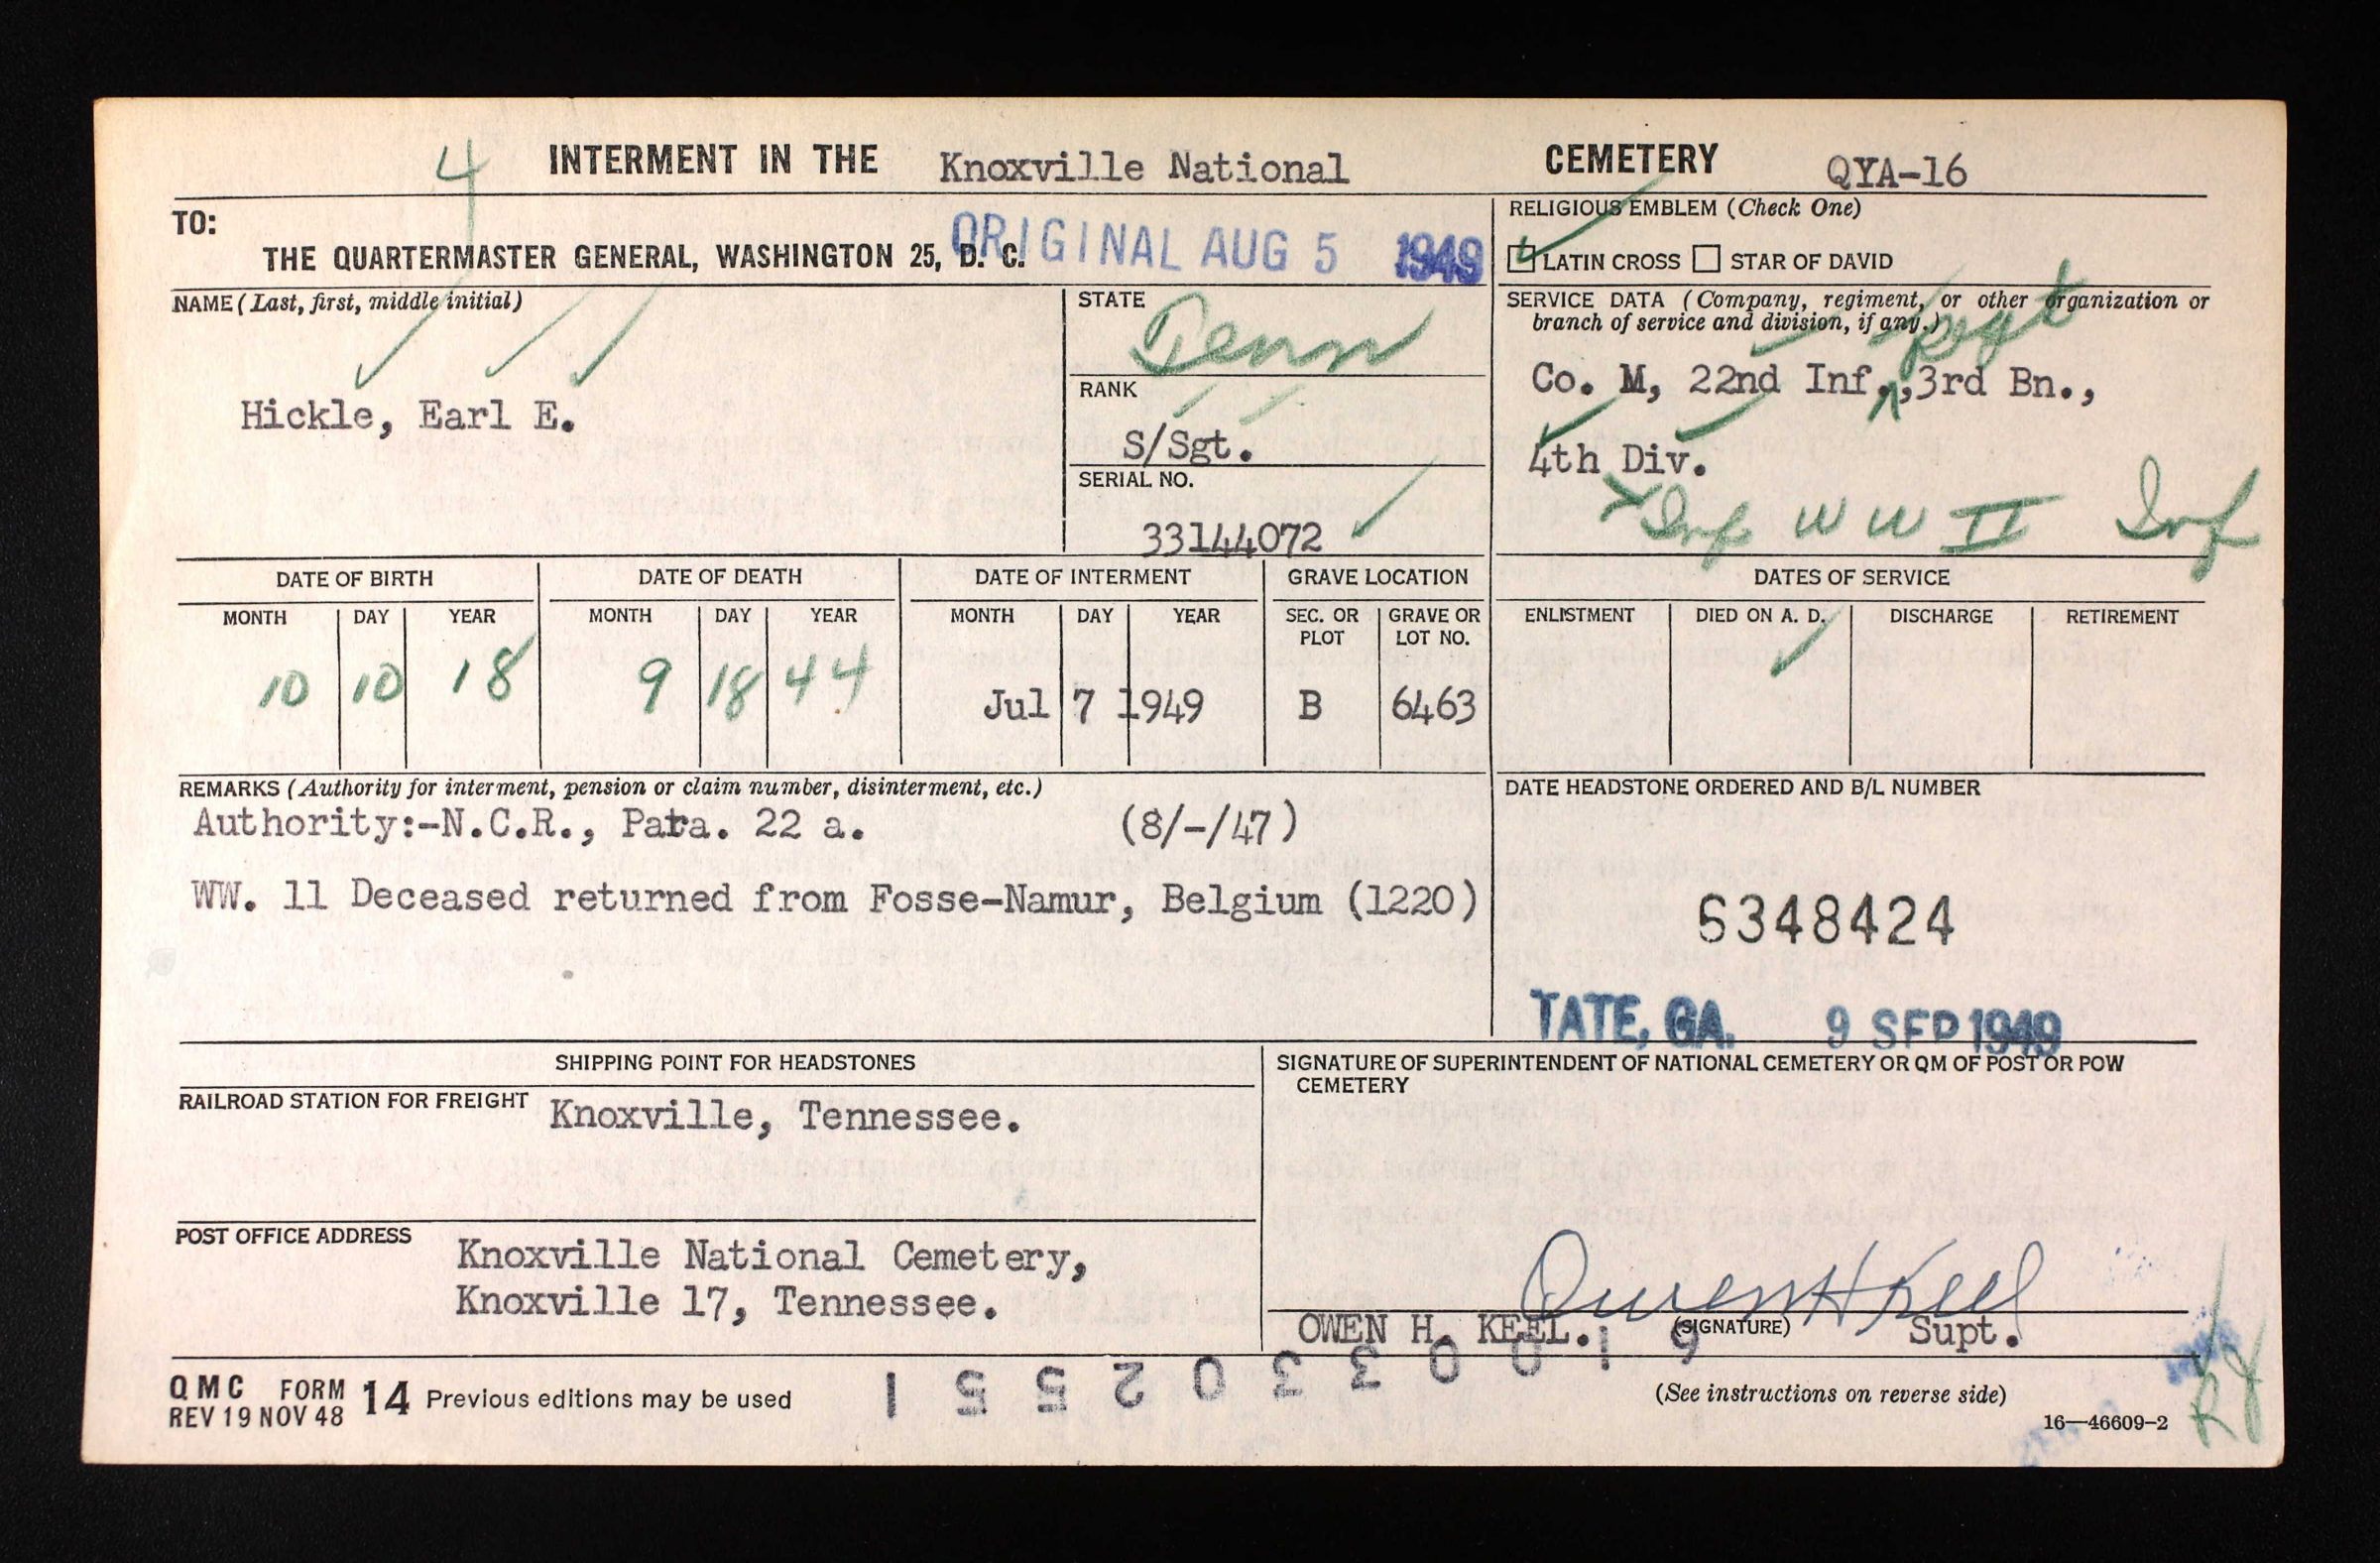 4
INTERMENT IN THE Knoxville National CEMETERY QYA-16
TO:
THE QUARTERMASTER GENERAL, WASHINGTON 25, D. C.
ORIGINAL AUG 5 1949
RELIGIOUS EMBLEM (Check One)
LATIN CROSS STAR OF DAVID
NAME (Last, first, middle initial)
Hickle, Earl E.
STATE
Tenn
RANK
S/Sgt.
SERIAL NO.
33144072
SERVICE DATA (Company, regiment, or other organization or
branch of service and division, if any.)
Regt
Co. M, 22nd Inf.,3rd Bn.,
4th Div.
Inf WW II Inf
DATE OF BIRTH DATE OF DEATH DATE OF INTERMENT GRAVE LOCATION DATES OF SERVICE
MONTH DAY YEAR MONTH DAY YEAR MONTH DAY YEAR SEC. OR PLOT GRAVE OR LOT NO. ENLISTMENT DIED ON A. D. DISCHARGE RETIREMENT
10 10 18 9 18 44 Jul 7 1949 B 6463
REMARKS (Authority for interment, pension or claim number, disinterment, etc.)
Authority:-N.C.R., Para. 22 a. (8/-/47)
WW. 11 Deceased returned from Fosse-Namur, Belgium (1220)
DATE HEADSTONE ORDERED AND B/L NUMBER
6348424
TATE, GA. 9 SEP 1949
SHIPPING POINT FOR HEADSTONES
RAILROAD STATION FOR FREIGHT Knoxville, Tennessee.
POST OFFICE ADDRESS
Knoxville National Cemetery,
Knoxville 17, Tennessee.
SIGNATURE OF SUPERINTENDENT OF NATIONAL CEMETERY OR QM OF POST OR POW
CEMETERY
Owen H Keel
OWEN H. KEEL. (SIGNATURE) Supt.
QMC FORM 14 Previous editions may be used
REV 19 NOV 48
91003302551
(See instructions on reverse side)
16—46609-2